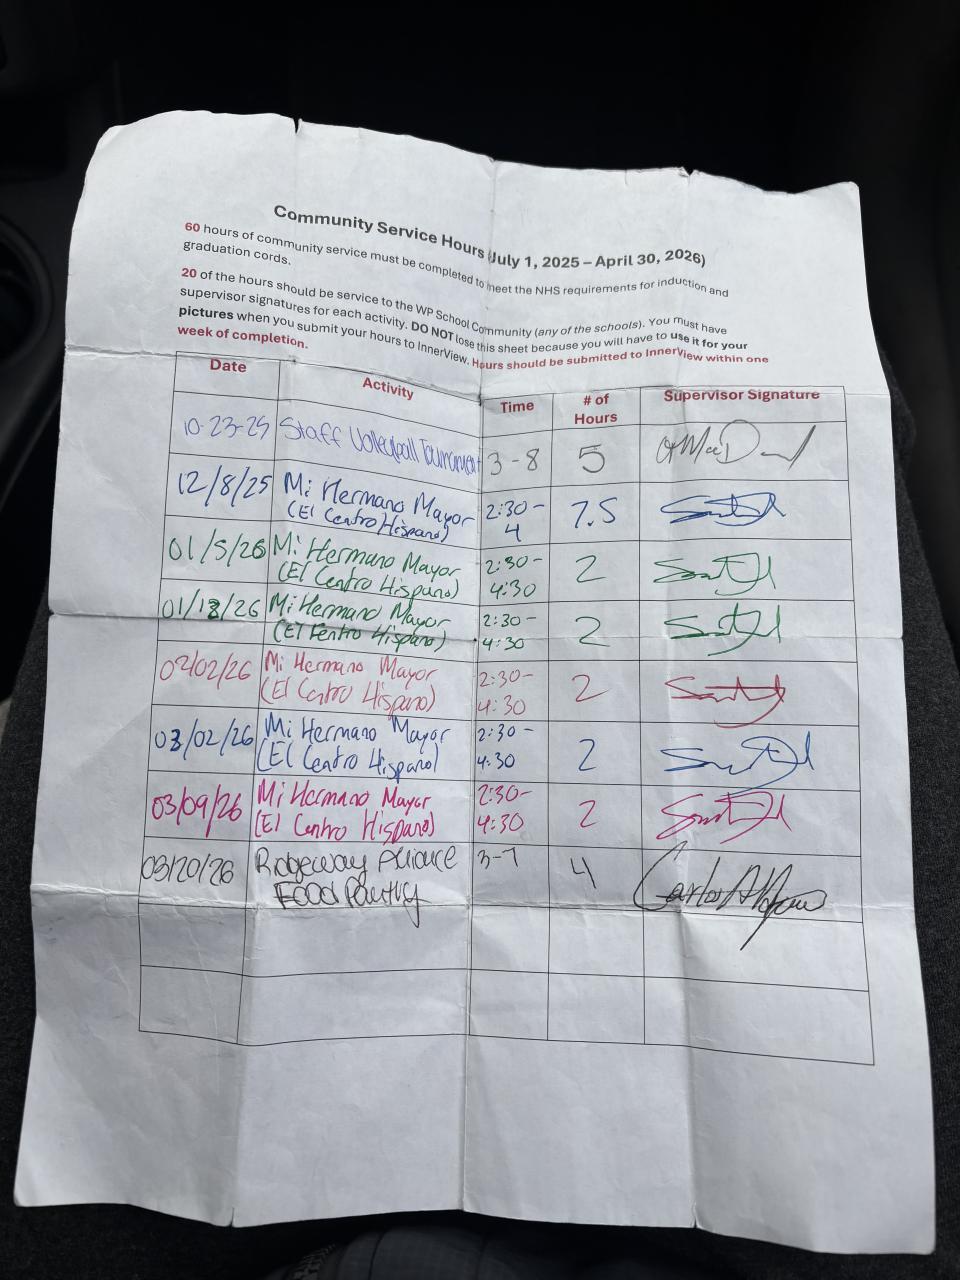 Community Service Hours (July 1, 2025 – April 30, 2026)
60 hours of community service must be completed to meet the NHS requirements for induction and
graduation cords.
20 of the hours should be service to the WP School Community (any of the schools). You must have
supervisor signatures for each activity. DO NOT lose this sheet because you will have to use it for your
pictures when you submit your hours to InnerView. Hours should be submitted to InnerView within one
week of completion.
Date Activity Time # of Hours Supervisor Signature
10-23-25 Staff Volleyball Tournament 3-8 5
12/8/25 Mi Hermano Mayor (El Centro Hispano) 2:30-4 7.5
01/5/26 Mi Hermano Mayor (El Centro Hispano) 2:30-4:30 2
01/12/26 Mi Hermano Mayor (El Centro Hispano) 2:30-4:30 2
02/02/26 Mi Hermano Mayor (El Centro Hispano) 2:30-4:30 2
03/02/26 Mi Hermano Mayor (El Centro Hispano) 2:30-4:30 2
03/09/26 Mi Hermano Mayor (El Centro Hispano) 2:30-4:30 2
03/20/26 Ridgeway Alliance Food Pantry 3-7 4 Carlos